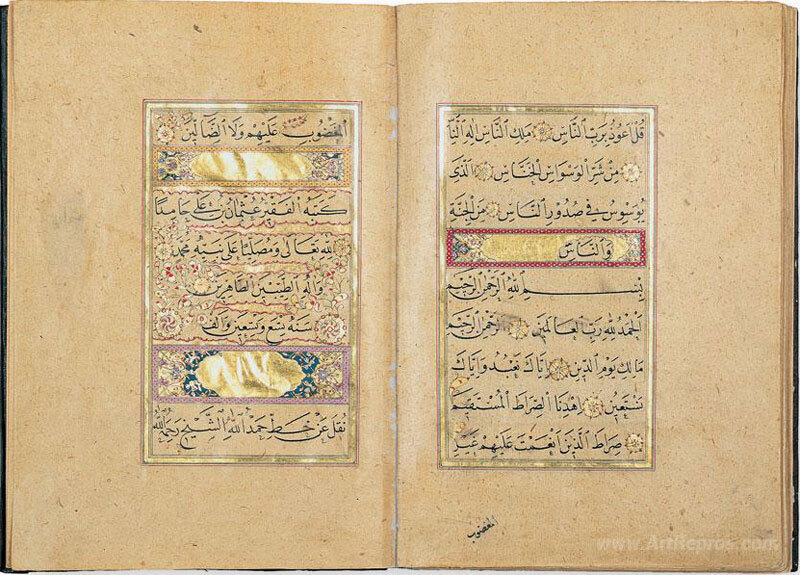 قُلْ اَعُوذُ بِرَبِّ النَّاسِ مَلِكِ النَّاسِ اِلٰهِ النَّاسِ
مِنْ شَرِّ الْوَسْوَاسِ الْخَنَّاسِ اَلَّذِى
يُوَسْوِسُ فِى صُدُورِ النَّاسِ مِنَ الْجِنَّةِ
وَالنَّاسِ
بِسْمِ اللّٰهِ الرَّحْمٰنِ الرَّحِيمِ
اَلْحَمْدُ لِلّٰهِ رَبِّ الْعَالَمِينَ اَلرَّحْمٰنِ الرَّحِيمِ
مَالِكِ يَوْمِ الدِّينِ اِيَّاكَ نَعْبُدُ وَاِيَّاكَ
نَسْتَعِينُ اِهْدِنَا الصِّرَاطَ الْمُسْتَقِيمَ
صِرَاطَ الَّذِينَ اَنْعَمْتَ عَلَيْهِمْ غَيْرِ
المغضوب
الْمَغْضُوبِ عَلَيْهِمْ وَلَا الضَّالِّينَ
كَتَبَهُ الْفَقِيرُ عُثْمَانُ بْنُ عَلِى حَامِدًا
لِلّٰهِ تَعَالٰى وَمُصَلِّيًا عَلٰى نَبِيِّهِ مُحَمَّد
وَاٰلِهِ الطَّيِّبِينَ الطَّاهِرِينَ
سَنَةَ تِسْعٍ وَتِسْعِينَ وَاَلْف
نُقِلَ عَنْ خَطِّ حَمْدُ اللّٰهِ الشَّيْخِ رَحِمَهُ اللّٰهُ
www.ArtRepros.com